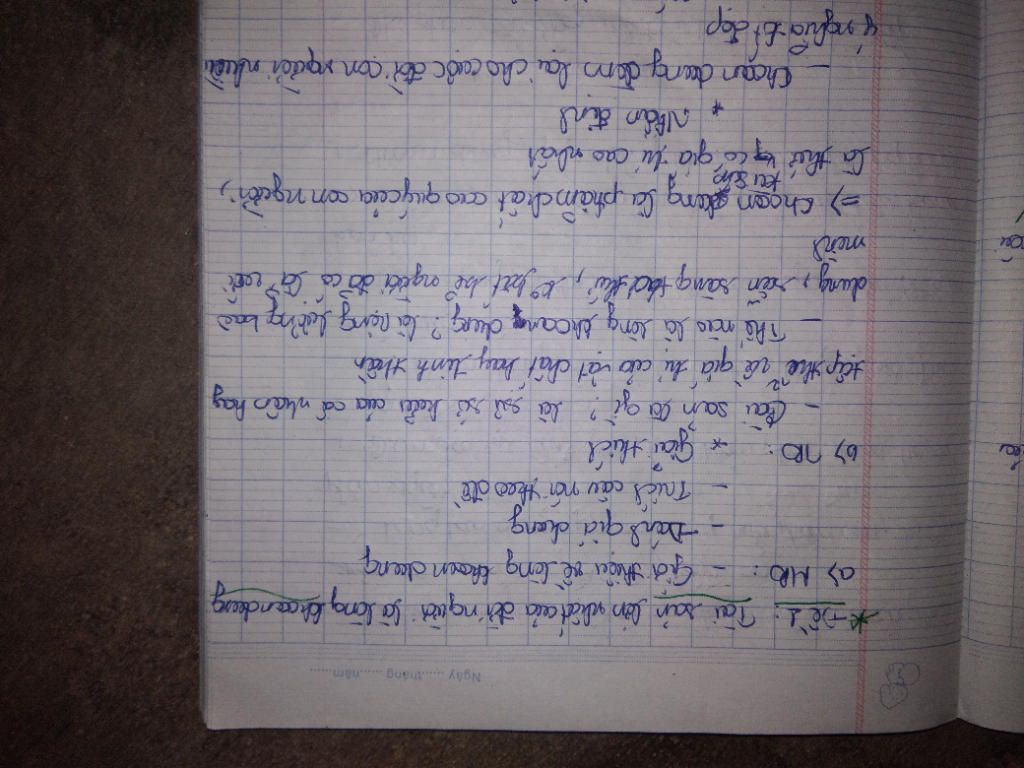 Ngày ...... tháng ...... năm ......
* Đề 1: Tài sản lớn nhất của đời người là lòng khoan dung
a) MB: - Giới thiệu về lòng khoan dung
- Đánh giá chung
- Trích câu nói theo đề
b) TB: * Giải thích
- Tài sản là gì? là sự sở hữu của cá nhân hay
tập thể về giá trị của vật chất hay tinh thần
- Thế nào là lòng khoan dung? là rộng lượng bao
dung, sẵn sàng tha thứ, ko bất kể người đó có là
mình
=> khoan dung là phẩm chất cao quý của con người,
là thứ tài sản có giá trị cao nhất
* Nhận định
- khoan dung đem lại cho cuộc đời con người nhiều
ý nghĩa tốt đẹp